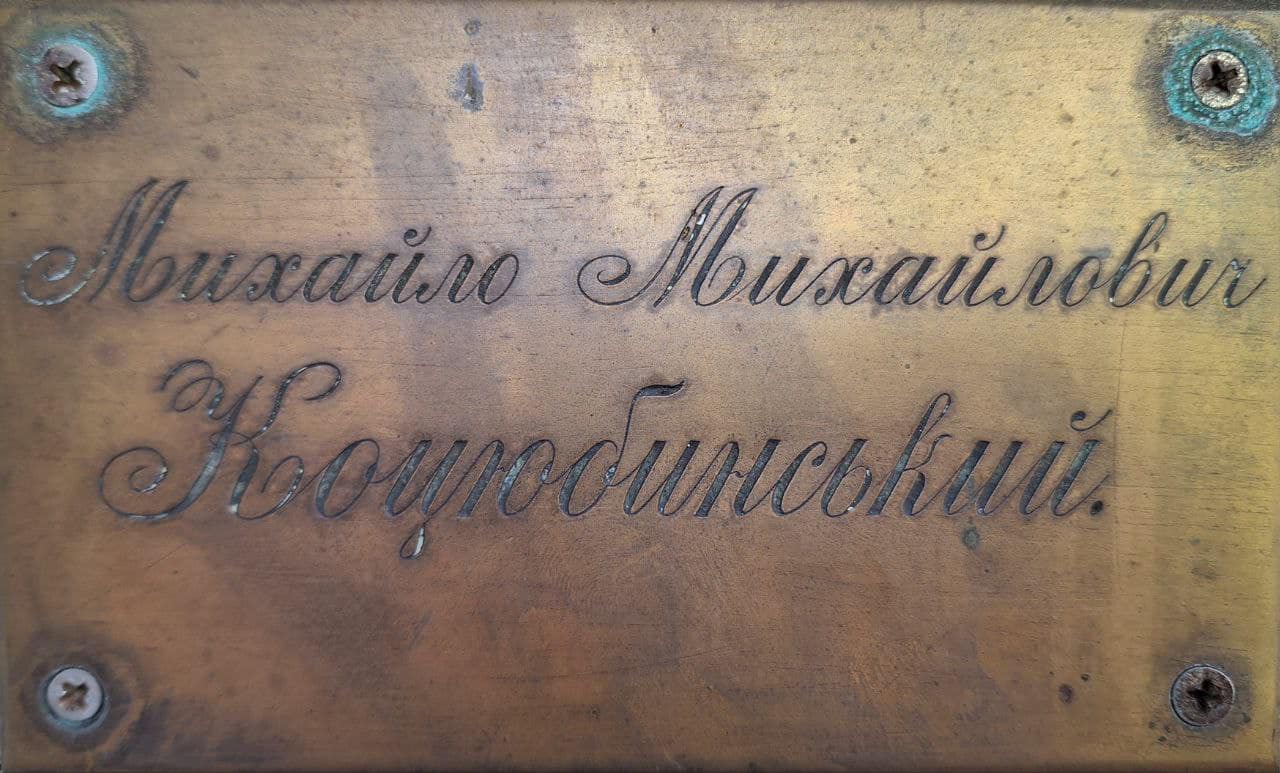 Михайло Михайлович
Коцюбинський.